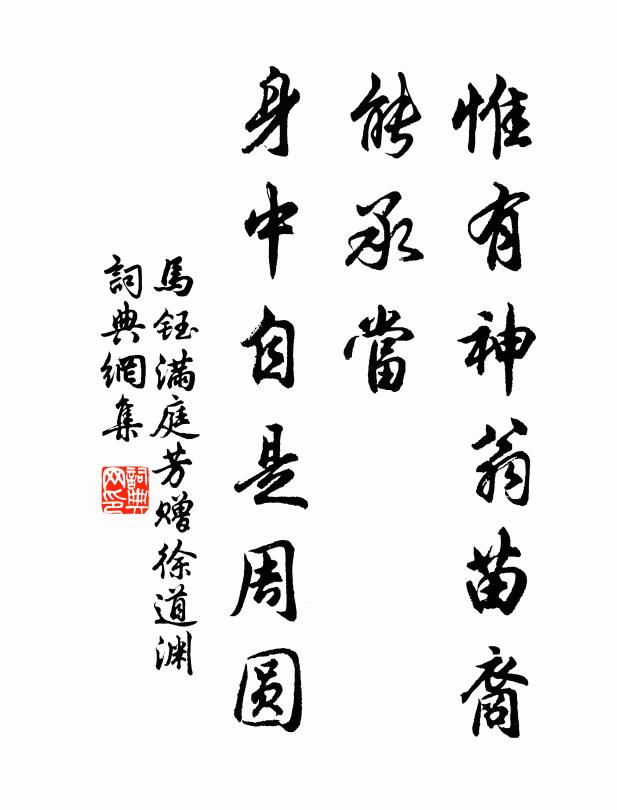 惟有神翁苗裔
能承當
身中自是周圆
馬鈺满庭芳赠徐道渊
詞典網集
詞典網印